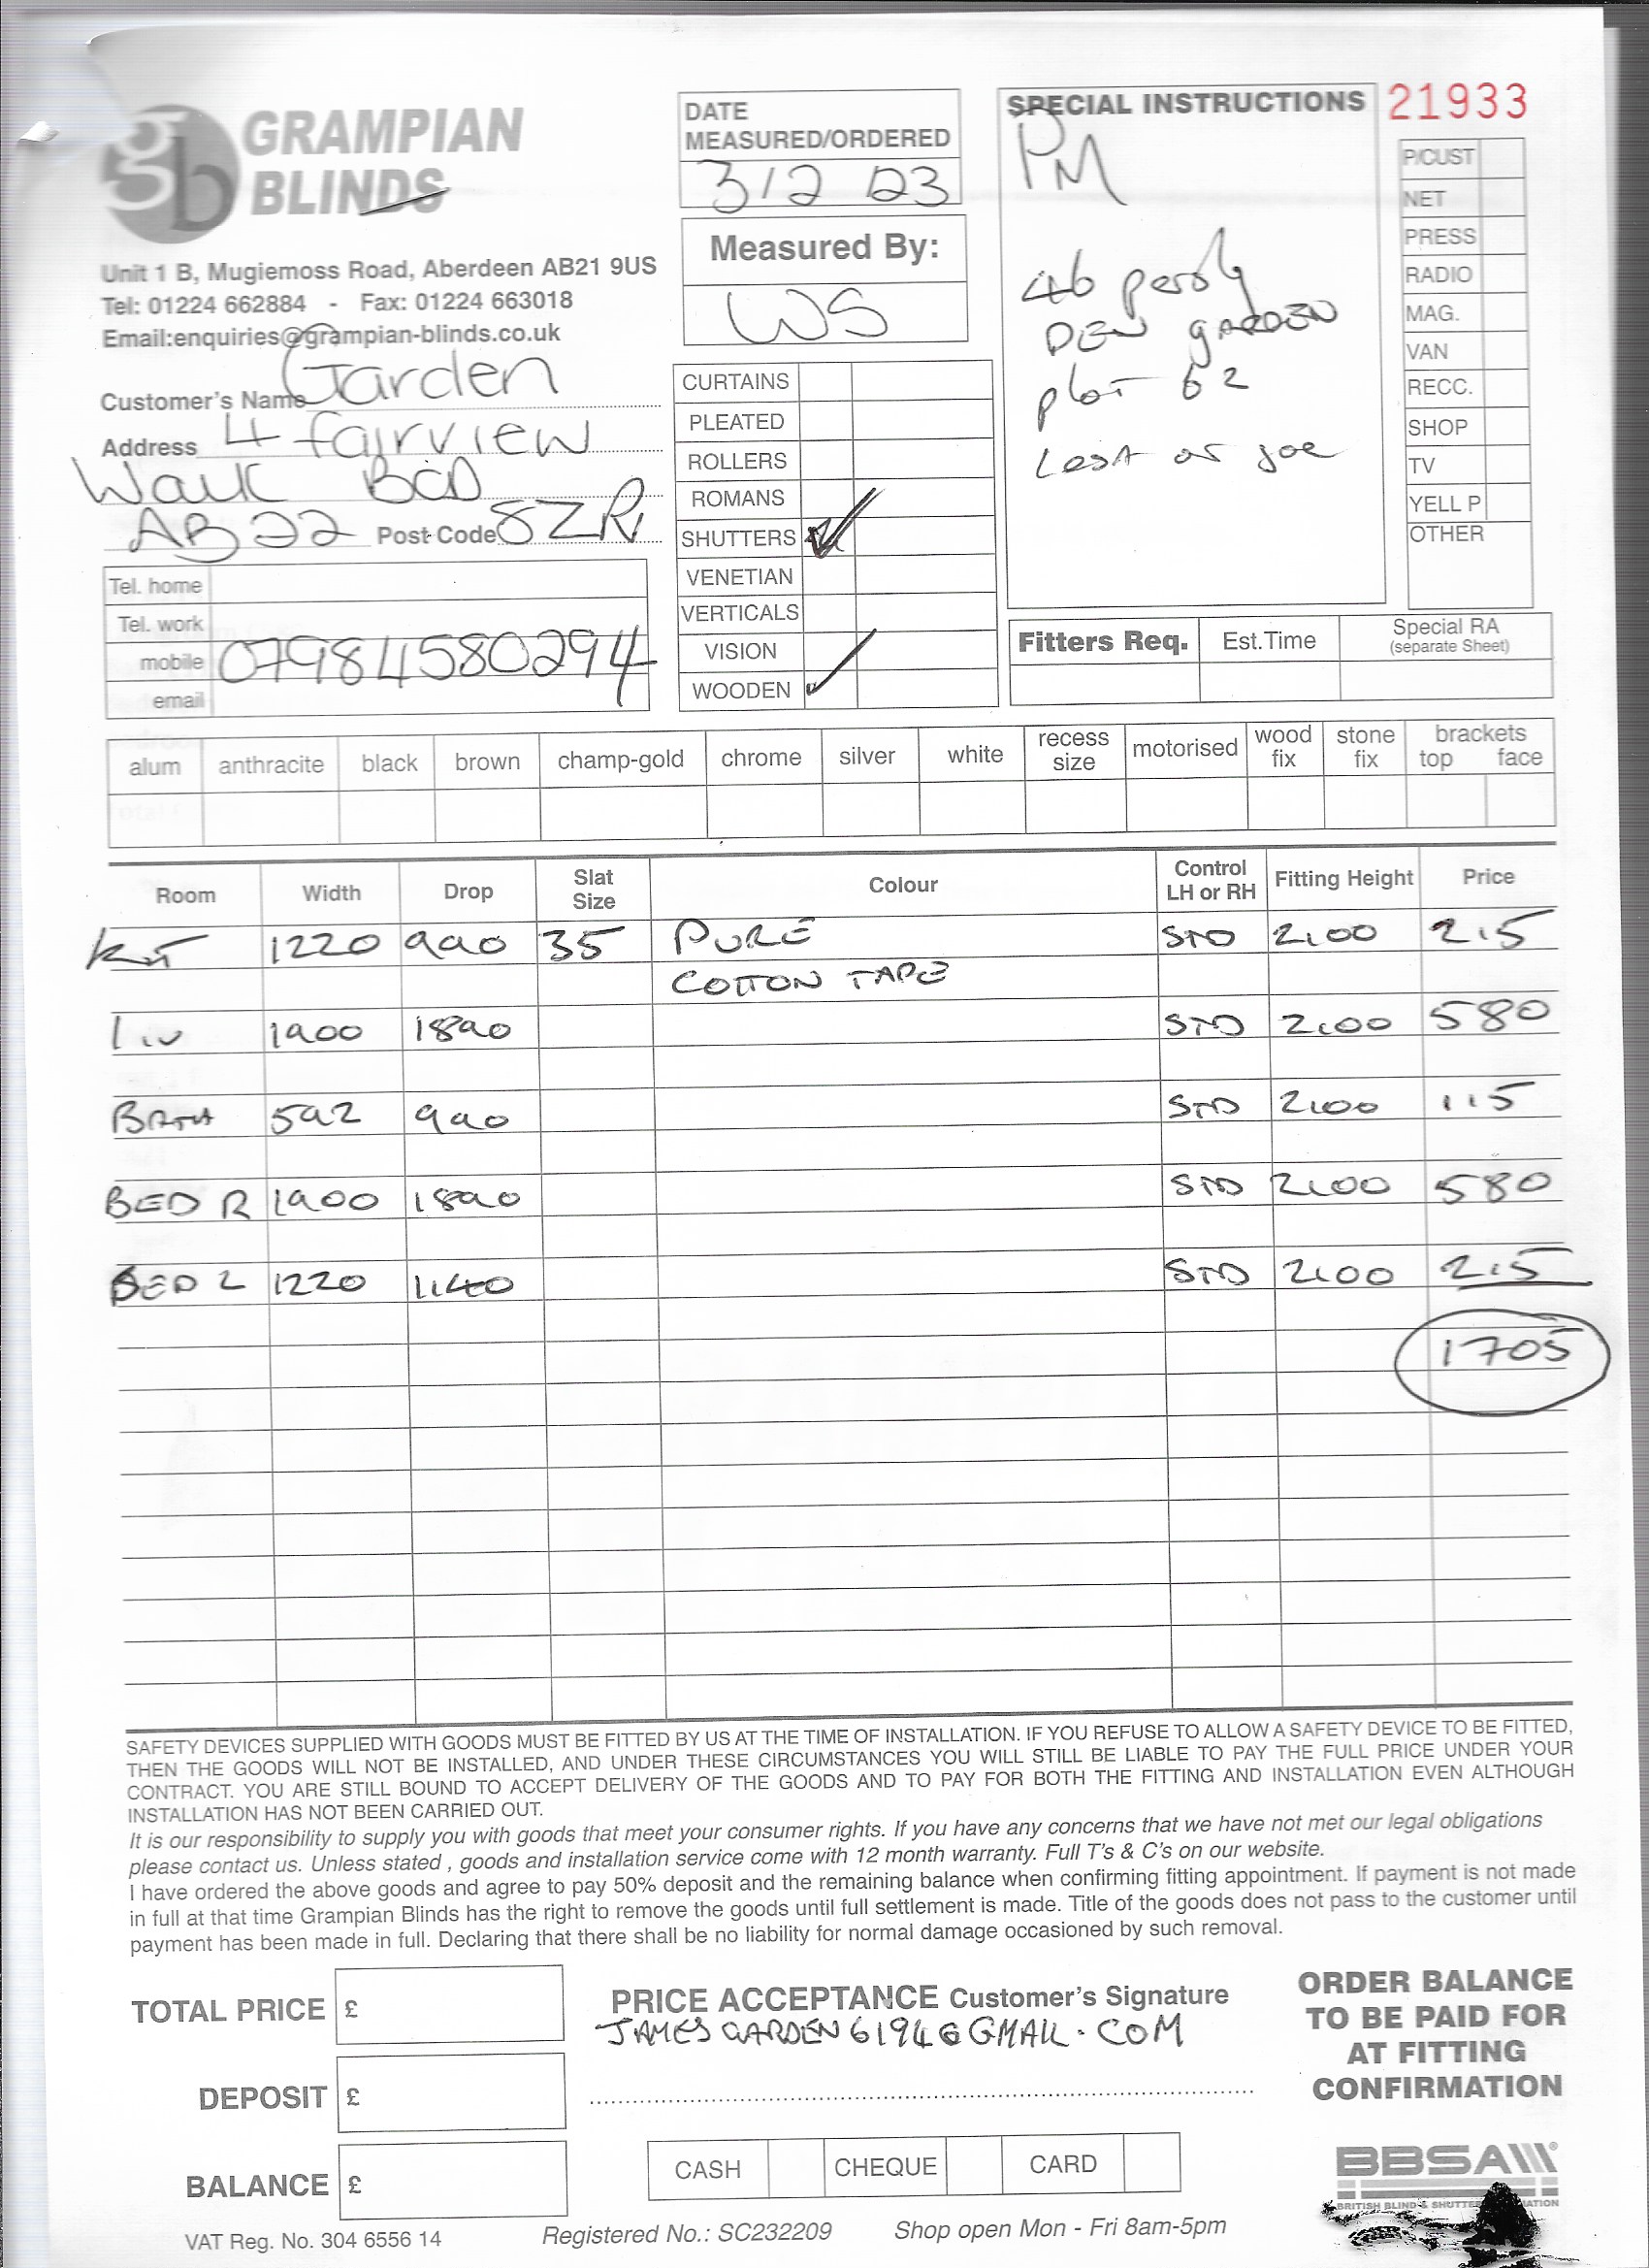 gb GRAMPIAN BLINDS
Unit 1 B, Mugiemoss Road, Aberdeen AB21 9US
Tel: 01224 662884 - Fax: 01224 663018
Email:enquiries@grampian-blinds.co.uk
Customer's Name Garden
Address 4 fairview
Walk BOD
AB22 Post Code 8ZR
Tel. home
Tel. work
mobile 07984580294
email
DATE
MEASURED/ORDERED
3/2 23
Measured By:
WS
CURTAINS
PLEATED
ROLLERS
ROMANS
SHUTTERS
VENETIAN
VERTICALS
VISION
WOODEN
SPECIAL INSTRUCTIONS
PM
46
DEN GARDEN
plot 62
or joe
21933
P/CUST
NET
PRESS
RADIO
MAG.
VAN
RECC.
SHOP
TV
YELL P
OTHER
Fitters Req. Est.Time Special RA (separate Sheet)
alum anthracite black brown champ-gold chrome silver white recess size motorised wood fix stone fix brackets top face
Room Width Drop Slat Size Colour Control LH or RH Fitting Height Price
KIT 1220 990 35 PURE STD 2100 215
COTTON TAPE
Liv 1900 1890 STD 2100 580
BATH 592 990 STD 2100 115
BED R 1900 1890 STD 2100 580
BED L 1220 1140 STD 2100 215
1705
SAFETY DEVICES SUPPLIED WITH GOODS MUST BE FITTED BY US AT THE TIME OF INSTALLATION. IF YOU REFUSE TO ALLOW A SAFETY DEVICE TO BE FITTED,
THEN THE GOODS WILL NOT BE INSTALLED, AND UNDER THESE CIRCUMSTANCES YOU WILL STILL BE LIABLE TO PAY THE FULL PRICE UNDER YOUR
CONTRACT. YOU ARE STILL BOUND TO ACCEPT DELIVERY OF THE GOODS AND TO PAY FOR BOTH THE FITTING AND INSTALLATION EVEN ALTHOUGH
INSTALLATION HAS NOT BEEN CARRIED OUT.
It is our responsibility to supply you with goods that meet your consumer rights. If you have any concerns that we have not met our legal obligations
please contact us. Unless stated , goods and installation service come with 12 month warranty. Full T's & C's on our website.
I have ordered the above goods and agree to pay 50% deposit and the remaining balance when confirming fitting appointment. If payment is not made
in full at that time Grampian Blinds has the right to remove the goods until full settlement is made. Title of the goods does not pass to the customer until
payment has been made in full. Declaring that there shall be no liability for normal damage occasioned by such removal.
TOTAL PRICE £
DEPOSIT £
BALANCE £
PRICE ACCEPTANCE Customer's Signature
JAMESGARDEN6194@GMAIL.COM
CASH CHEQUE CARD
ORDER BALANCE
TO BE PAID FOR
AT FITTING
CONFIRMATION
BBSA
BRITISH BLIND & SHUTTER
VAT Reg. No. 304 6556 14 Registered No.: SC232209 Shop open Mon - Fri 8am-5pm